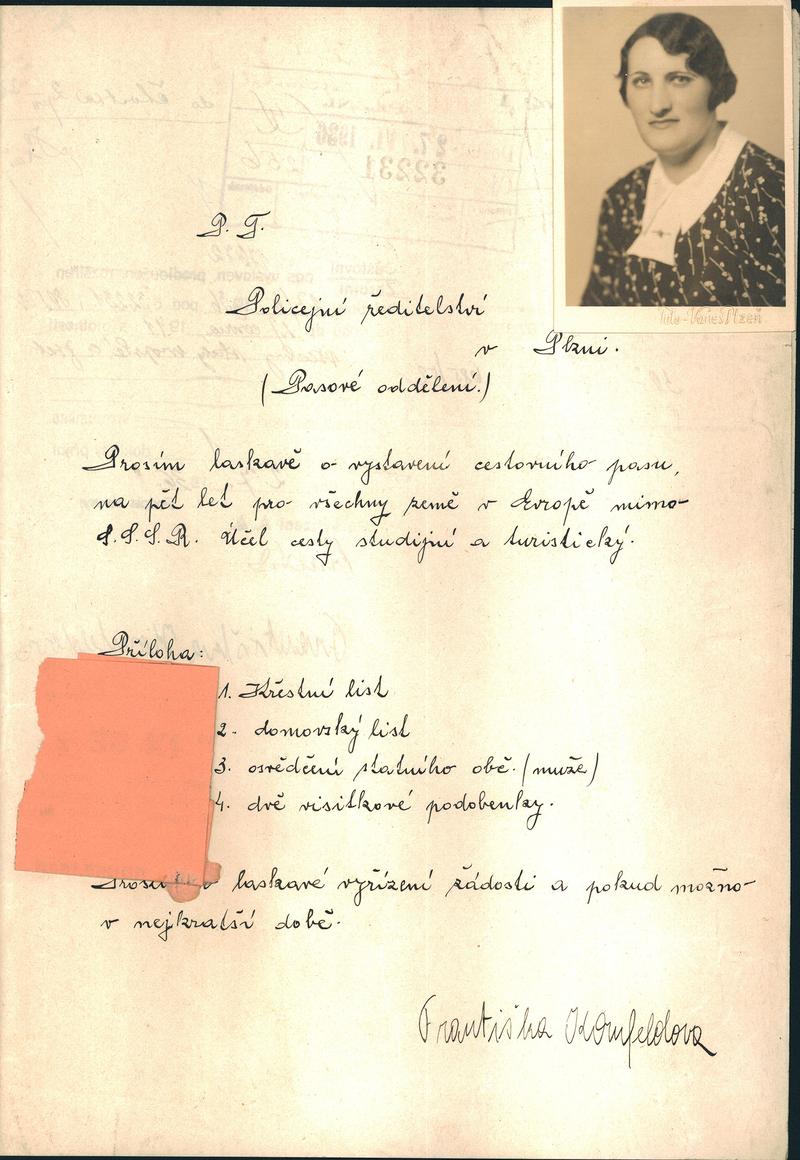 P. T.
Policejní ředitelství
v Plzni.
(Pasové oddělení.)
Prosím laskavě o vystavení cestovního pasu,
na pět let pro všechny země v Evropě mimo
S.S.S.R. Účel cesty studijní a turistický.
Příloha:
1. Křestní list
2. domovský list
3. osvědčení statního obč. (muže)
4. dvě visitkové podobenky.
laskavé vyřízení žádosti a pokud možno
v nejkratší době.
Františka Kornfeldova